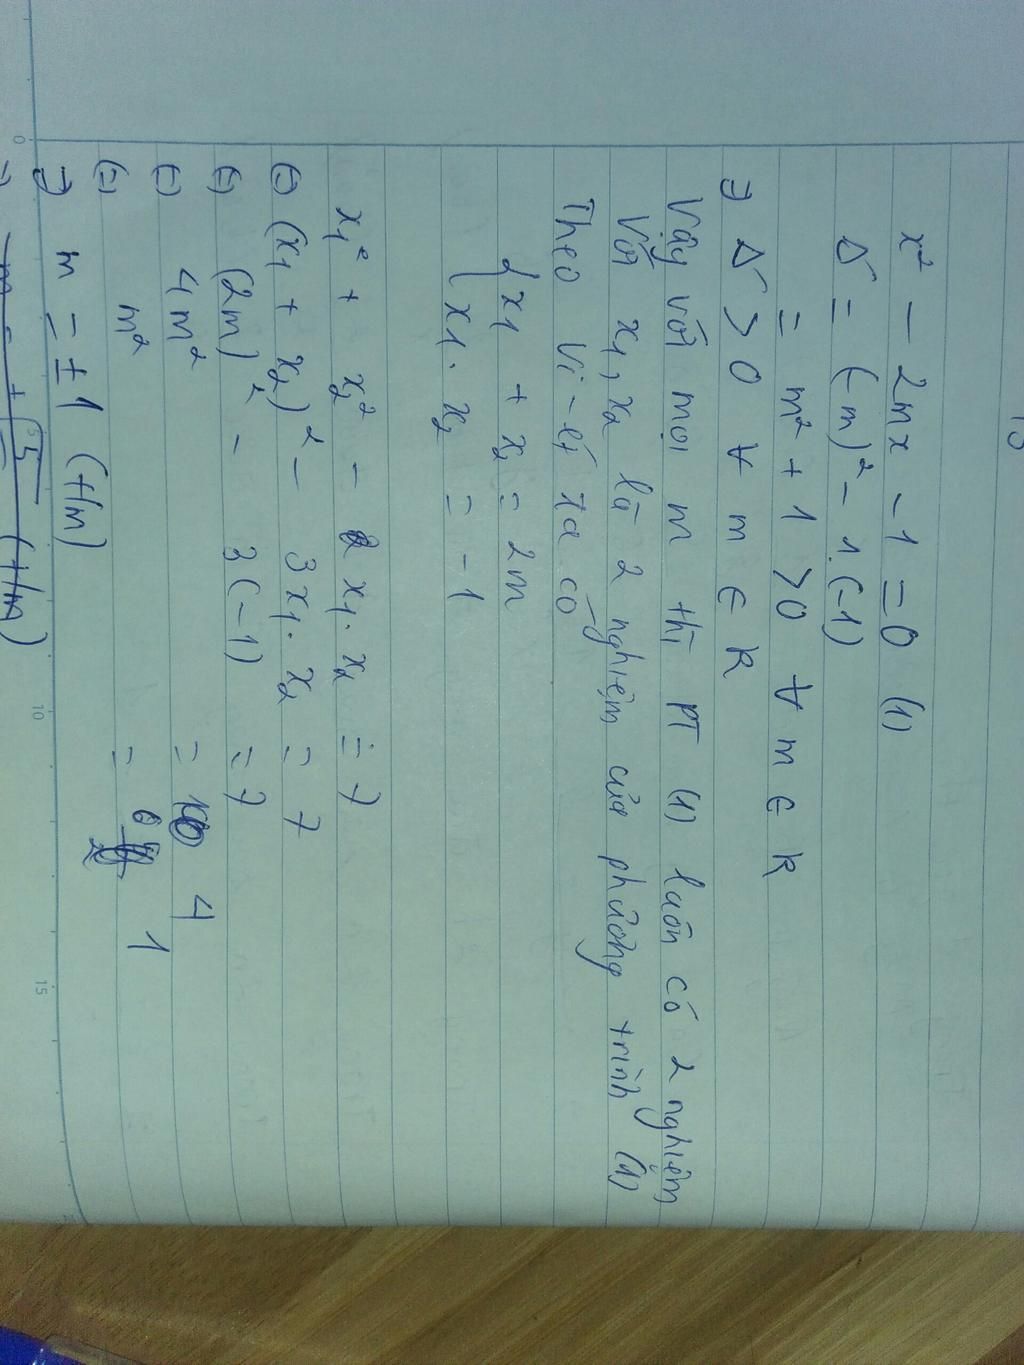 x² - 2mx - 1 = 0 (1)
Δ' = (-m)² - 1.(-1)
= m² + 1 > 0 ∀ m ∈ R
=> Δ' > 0 ∀ m ∈ R
Vậy với mọi m thì PT (1) luôn có 2 nghiệm
Với x₁, x₂ là 2 nghiệm của phương trình (1)
Theo Vi-ét ta có
{ x₁ + x₂ = 2m
x₁ . x₂ = -1
x₁² + x₂² - x₁ . x₂ = 7
⇔ (x₁ + x₂)² - 3x₁ . x₂ = 7
⇔ (2m)² - 3(-1) = 7
⇔ 4m² = 4
⇔ m² = 1
=> m = ±1 (t/m)
0 5 10 15